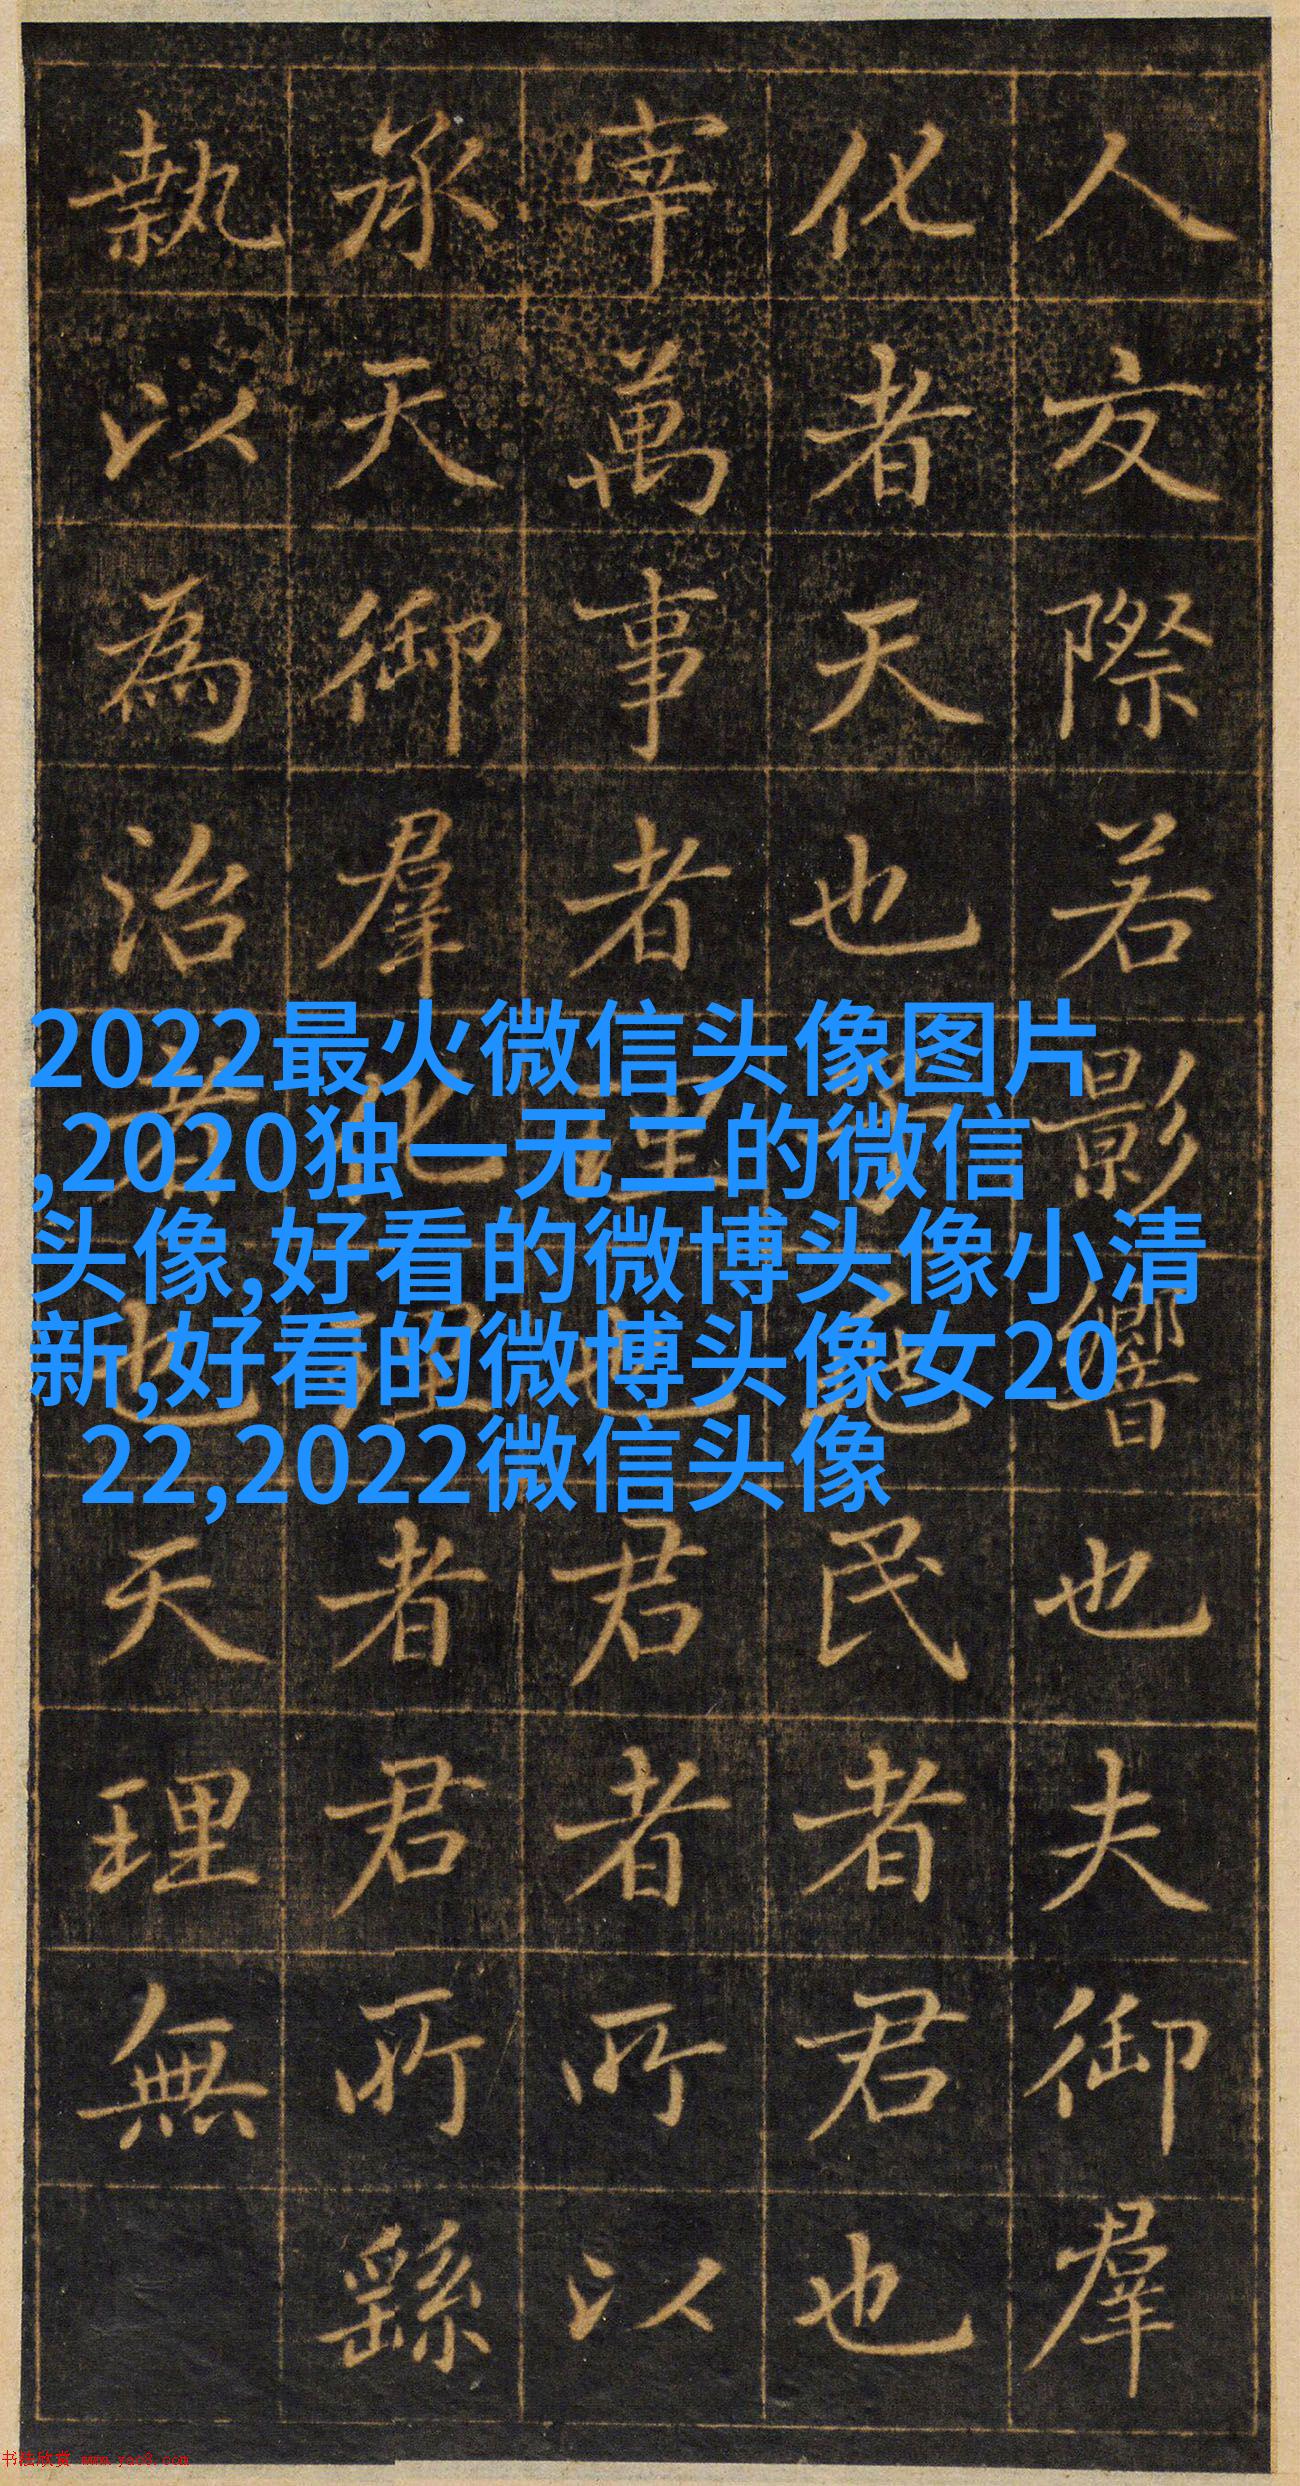 人交際若影響也夫御羣
化者天也民者君也
宰萬事者也君者所以
承天御羣化理者君所繇
執以為治者也天理無
2022最火微信头像图片
,2020独一无二的微信
头像,好看的微博头像小清
新,好看的微博头像女20
22,2022微信头像
书法欣赏 www.yac8.com